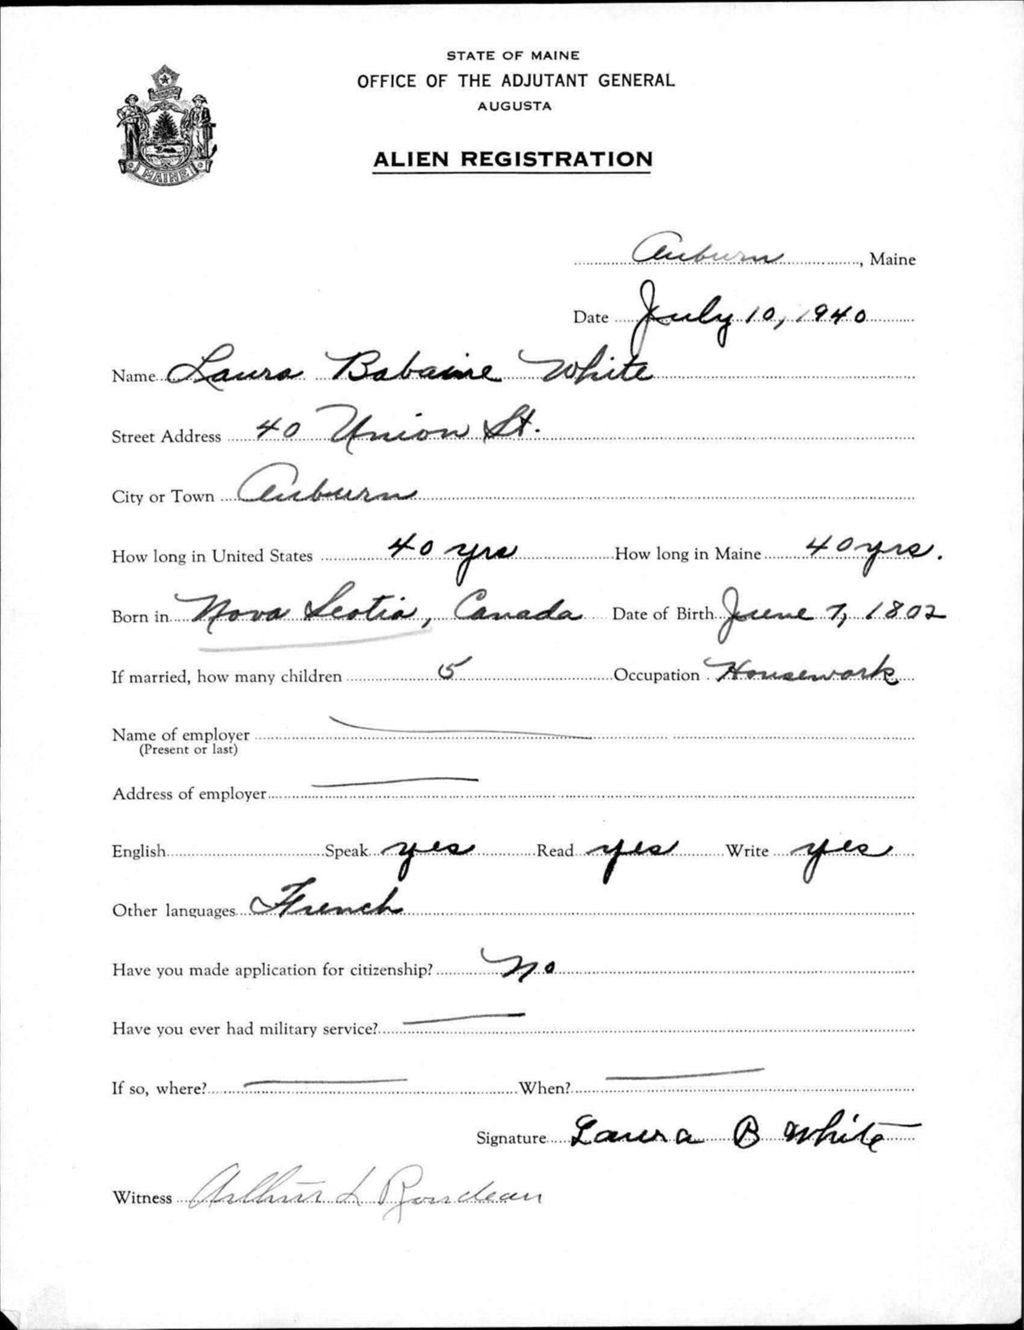 STATE OF MAINE
OFFICE OF THE ADJUTANT GENERAL
AUGUSTA
ALIEN REGISTRATION
MAINE
Auburn, Maine
Date July 10, 1940
Name Laura Babaine White
Street Address 40 Union St.
City or Town Auburn
How long in United States 40 yrs How long in Maine 40 yrs.
Born in Nova Scotia, Canada Date of Birth June 7, 1802
If married, how many children 5 Occupation Housework
Name of employer
(Present or last)
Address of employer
English Speak yes Read yes Write yes
Other languages French
Have you made application for citizenship? No
Have you ever had military service?
If so, where? When?
Signature Laura B White
Witness Arthur L Rondeau